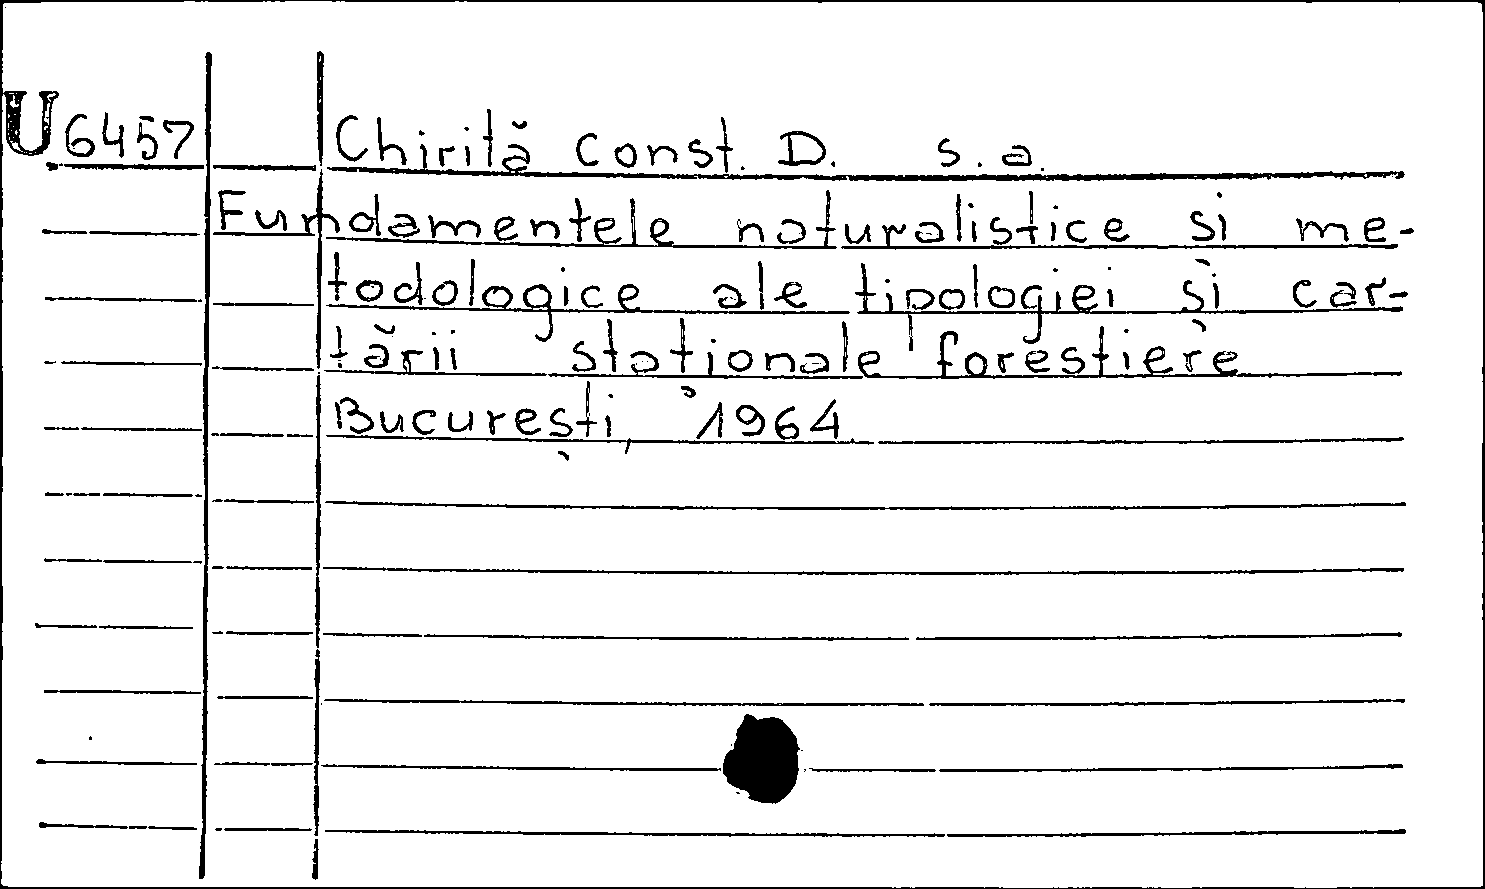 U6457 Chirită Const. D. s.a.
Fundamentele naturalistice și me-
todologice ale tipologiei și car-
tării staționale forestiere
București, 1964.